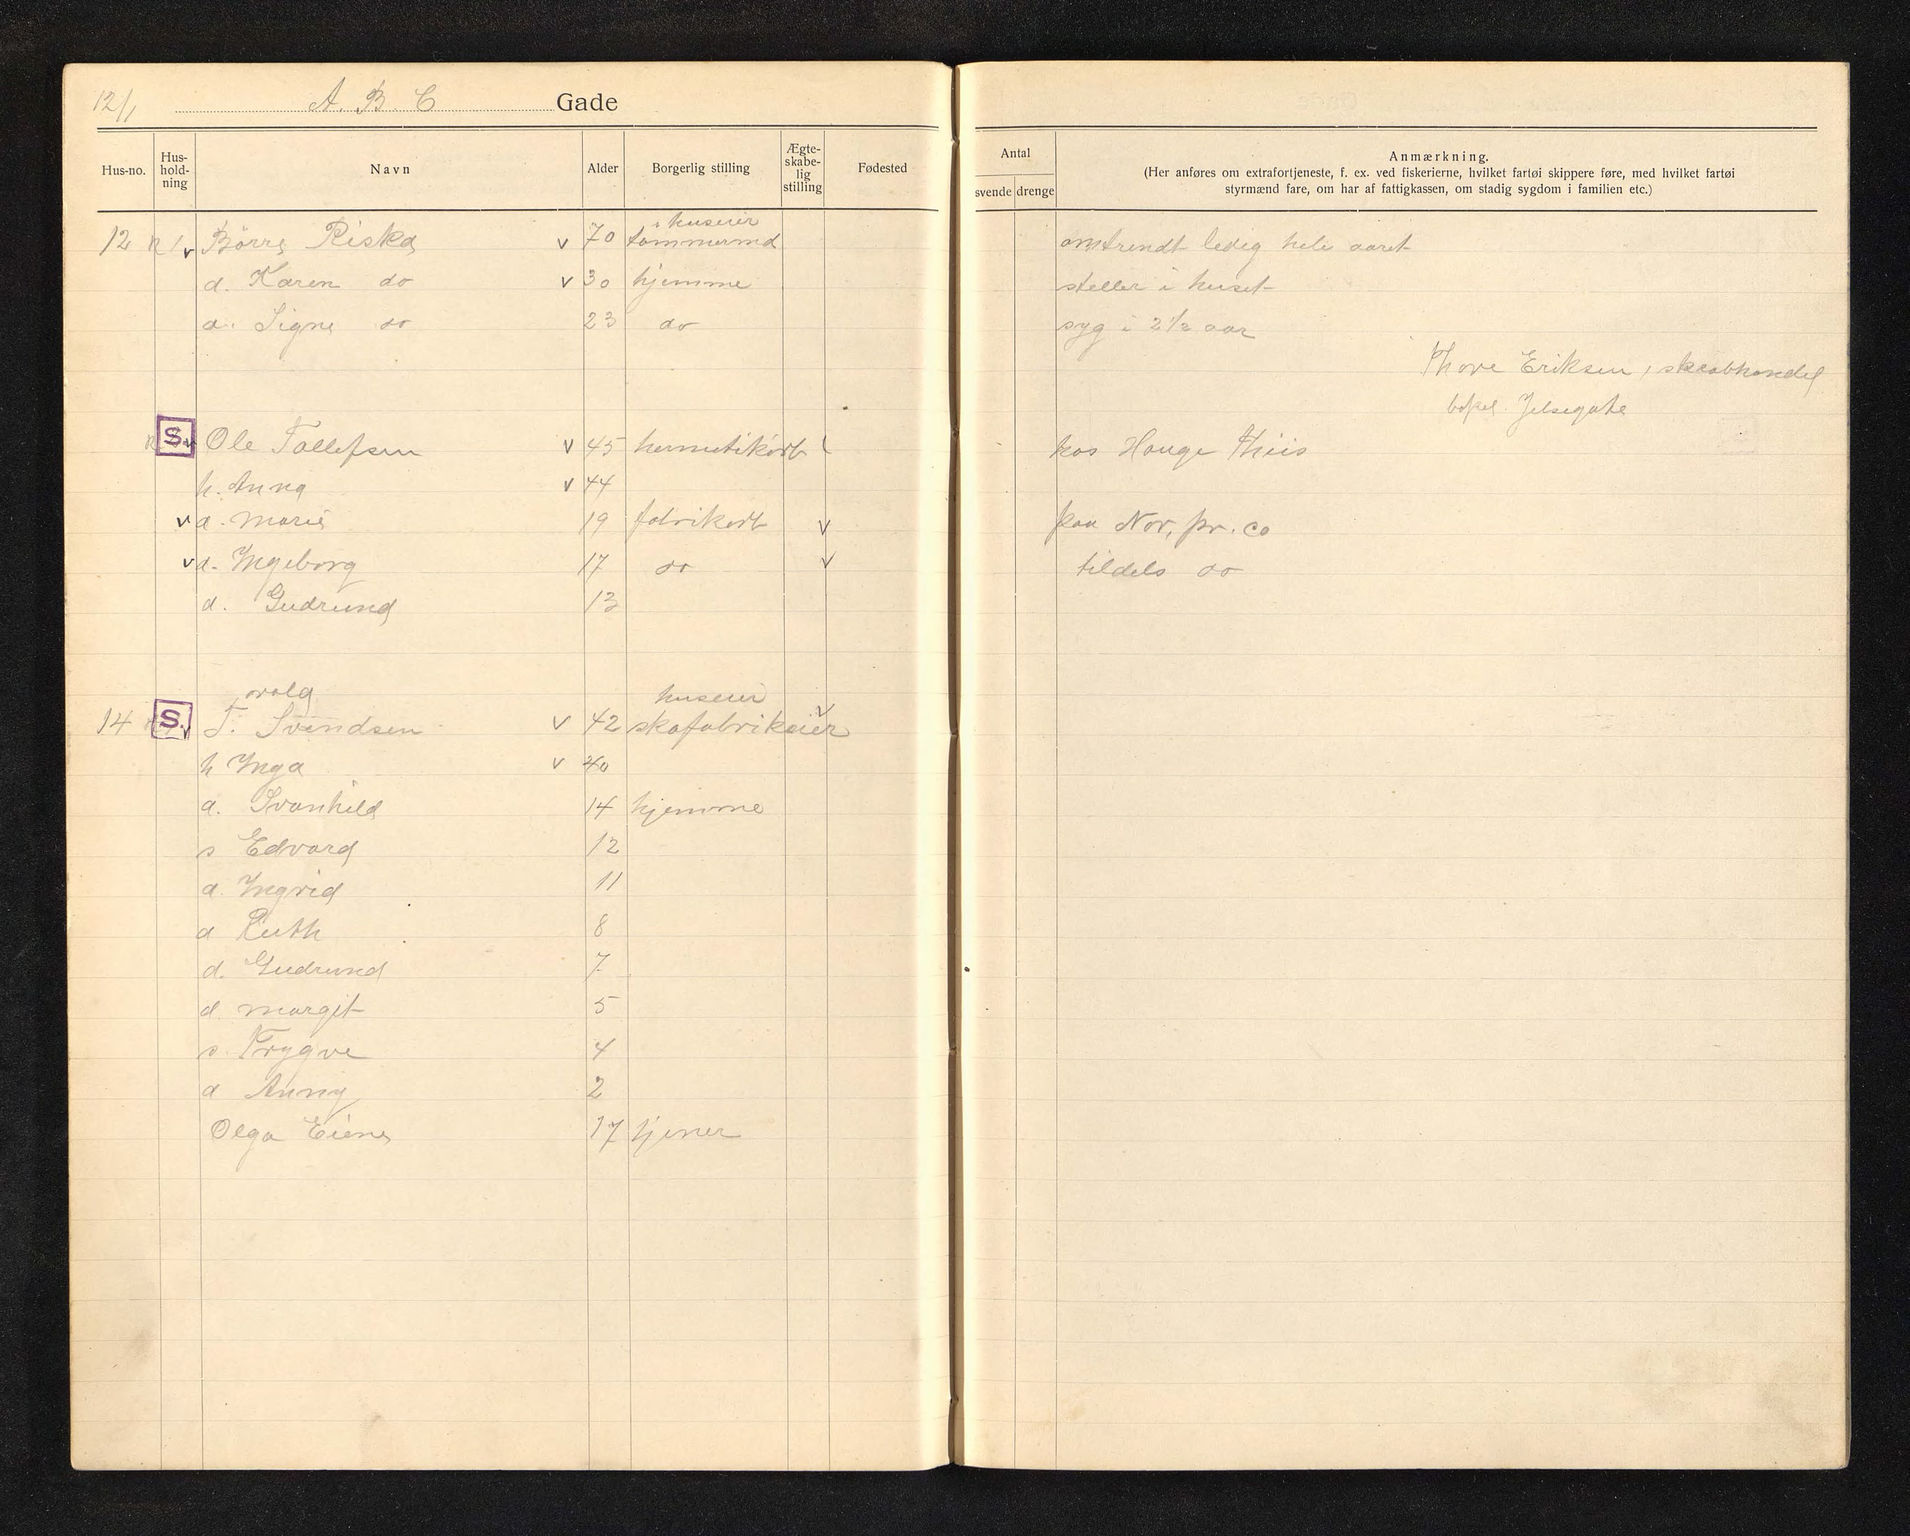 12/1 A. B. C Gade
Hus-no. Hus-hold-ning Navn Alder Borgerlig stilling Ægte-skabe-lig stilling Fødested
Antal
svende drenge
Anmærkning.
(Her anføres om extrafortjeneste, f. ex. ved fiskerierne, hvilket fartøi skippere føre, med hvilket fartøi
styrmænd fare, om har af fattigkassen, om stadig sygdom i familien etc.)
huseier
12 1 v Börre Riska v 70 tømmermd omtrendt ledig hele aaret
d. Karen do v 30 hjemme steller i huset
d. Signe do 23 do syg i 2 1/2 aar
Thore Eriksen, skrabhandel
bopel Jelsegate
S. v Ole Tollefsen v 45 hermetikarb hos Hauge Thiis
h. Anna v 44
v d. Marie 19 fabrikarb v paa Nor, pr. co
v d. Ingeborg 17 do v tildels do
d. Gudrund 13
vald huseier
14 S. v T. Svendsen v 42 skofabrikeier v
h Inga v 40
d. Svanhild 14 hjemme
s Edvard 12
d. Ingrid 11
d Ruth 8
d. Gudrund 7
d Margit 5
s. Trygve 4
d Anny 2
Olga Eiene 17 tjener